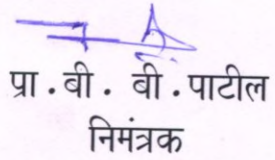 प्रा . बी . बी . पाटील
निमंत्रक